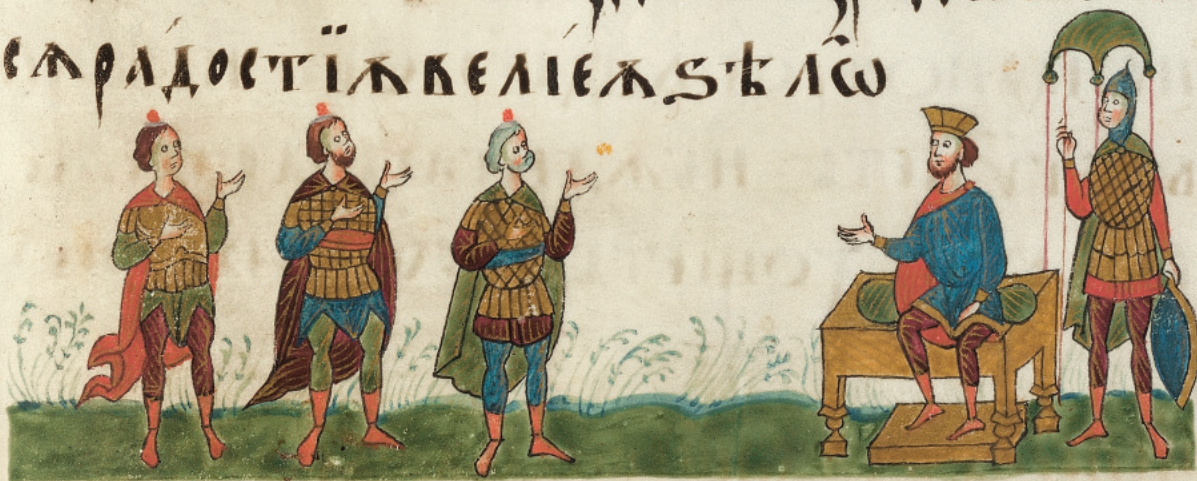 сѧ ра́достїѫ веліе́ѫ ѕѣлѡ̑